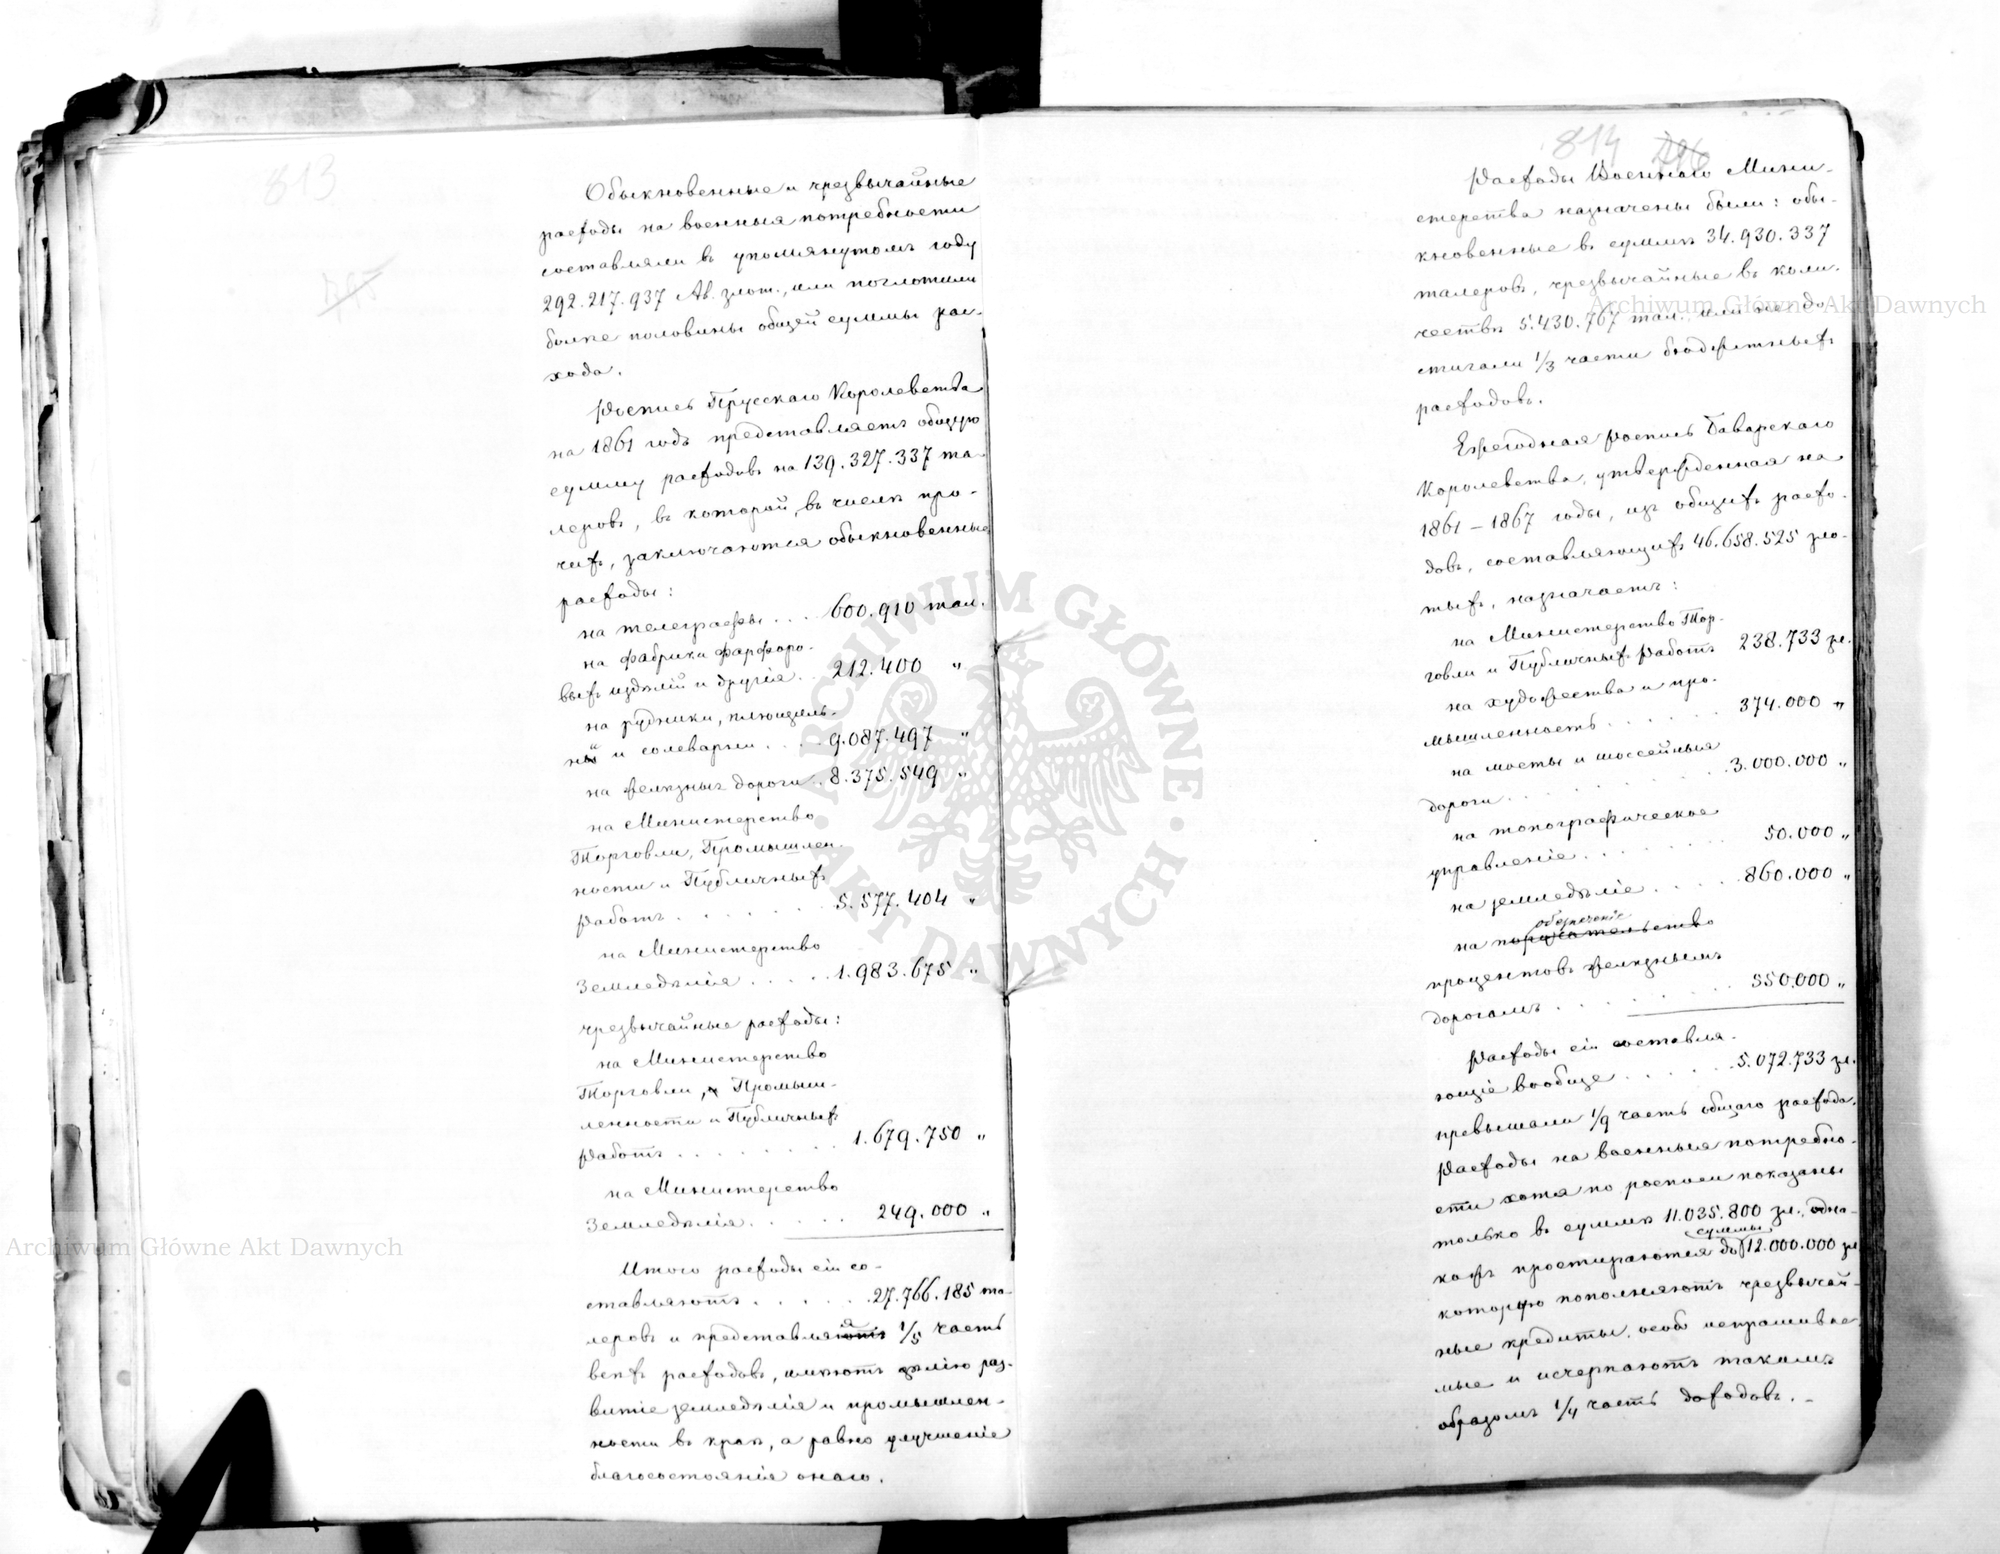 813
Обыкновенные и чрезвычайные
расходы на военныя потребности
составляли въ упомянутомъ году
292.217.937 Ав. злот., или поглотили
болѣе половины общей суммы рас-
хода.
Роспись Прусскаго Королевства
на 1861 годъ представляетъ общую
сумму расходовъ на 139.327.337 та-
леровъ, въ которой, въ числѣ про-
чихъ, заключаются обыкновенные
расходы:
на телеграфы . . . 600.910 тал.
на фабрики фарфоро-
выхъ издѣлій и другія . . 212.400 "
на рудники, плющиль-
ни и солеварни . . . . 9.087.497 "
на желѣзныя дороги . . 8.375.549 "
на Министерство
Торговли, Промышлен-
ности и Публичныхъ
Работъ . . . . . . . 5.577.404 "
на Министерство
Земледѣлія . . . . . 1.983.675 "
чрезвычайные расходы:
на Министерство
Торговли, Промыш-
ленности и Публичныхъ
Работъ . . . . . . . . 1.679.750 "
на Министерство
Земледѣлія . . . . . . 249.000 "
Итого расходы сіи со-
ставляютъ . . . . . . 27.766.185 та-
леровъ и представляя 1/5 часть
всѣхъ расходовъ, имѣютъ цѣлію раз-
витіе земледѣлія и промышлен-
ности въ краѣ, а равно улучшеніе
благосостоянія онаго.
814
Расходы Военнаго Мини-
стерства назначены были: обы-
кновенные въ суммѣ 34.930.337
талеровъ, чрезвычайные въ коли-
чествѣ 5.430.767 тал. или не до-
стигали 1/3 части бюджетныхъ
расходовъ.
Ежегодная роспись Баварскаго
Королевства, утвержденная на
1861 – 1867 годы, изъ общихъ расхо-
довъ, составляющихъ 46.658.525 зло-
тыхъ, назначаетъ:
на Министерство Тор-
говли и Публичныхъ Работъ 238.733 зл.
на художества и про-
мышленность . . . . . . 374.000 "
на мосты и шоссейныя
дороги . . . . . . . . 3.000.000 "
на топографическое
управленіе . . . . . . . . 50.000 "
на земледѣліе . . . . . 860.000 "
обезпеченіе
на поручательство
процентовъ желѣзнымъ
дорогамъ . . . . . . . . 550.000 "
Расходы сіи составля-
ющіе вообще . . . . . . 5.072.733 зл.
превышали 1/9 часть общаго расхода.
Расходы на военныя потребно-
сти хотя по росписи показаны
только въ суммѣ 11.035.800 зл., одна-
суммы
кожъ простираются до 12.000.000 зл
которую пополняютъ чрезвычай-
ные кредиты, особо испрашивае-
мые и исчерпаютъ такимъ
образомъ 1/4 часть доходовъ. –
Archiwum Główne Akt Dawnych
Archiwum Główne Akt Dawnych
ARCHIWUM GŁÓWNE
AKT DAWNYCH